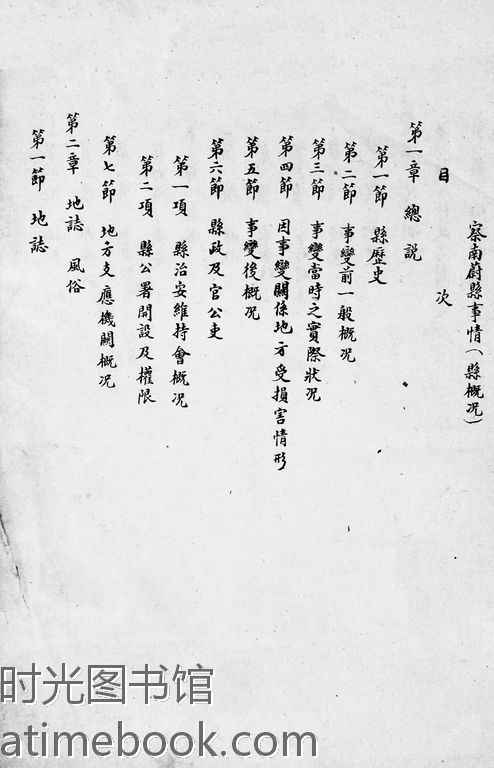 察南蔚縣事情(縣概况)
目次
第一章 總説
第一節 縣歷史
第二節 事變前一般概况
第三節 事變當時之實際狀况
第四節 因事變關係地方受損害情形
第五節 事變後概况
第六節 縣政及官公吏
第一項 縣治安維持會概况
第二項 縣公署開設及權限
第七節 地方支應機關概况
第二章 地誌 風俗
第一節 地誌
时光图书馆
atimebook.com